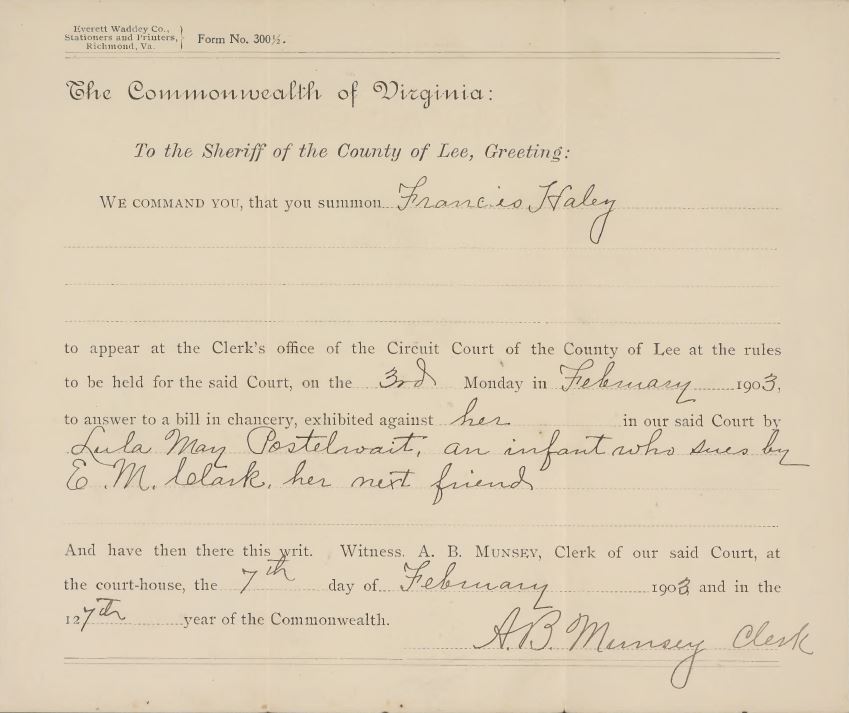 Everett Waddey Co.,
Stationers and Printers,
Richmond, Va.
Form No. 300½.
The Commonwealth of Virginia:
To the Sheriff of the County of Lee, Greeting:
WE COMMAND YOU, that you summon Francis Haley
to appear at the Clerk's office of the Circuit Court of the County of Lee at the rules
to be held for the said Court, on the 3rd Monday in February 1903,
to answer to a bill in chancery, exhibited against her in our said Court by
Lula May Postelwait, an infant who sues by
E. M. Clark, her next friend
And have then there this writ. Witness. A. B. MUNSEY, Clerk of our said Court, at
the court-house, the 7th day of February 1903 and in the
127th year of the Commonwealth.
A. B. Munsey Clerk